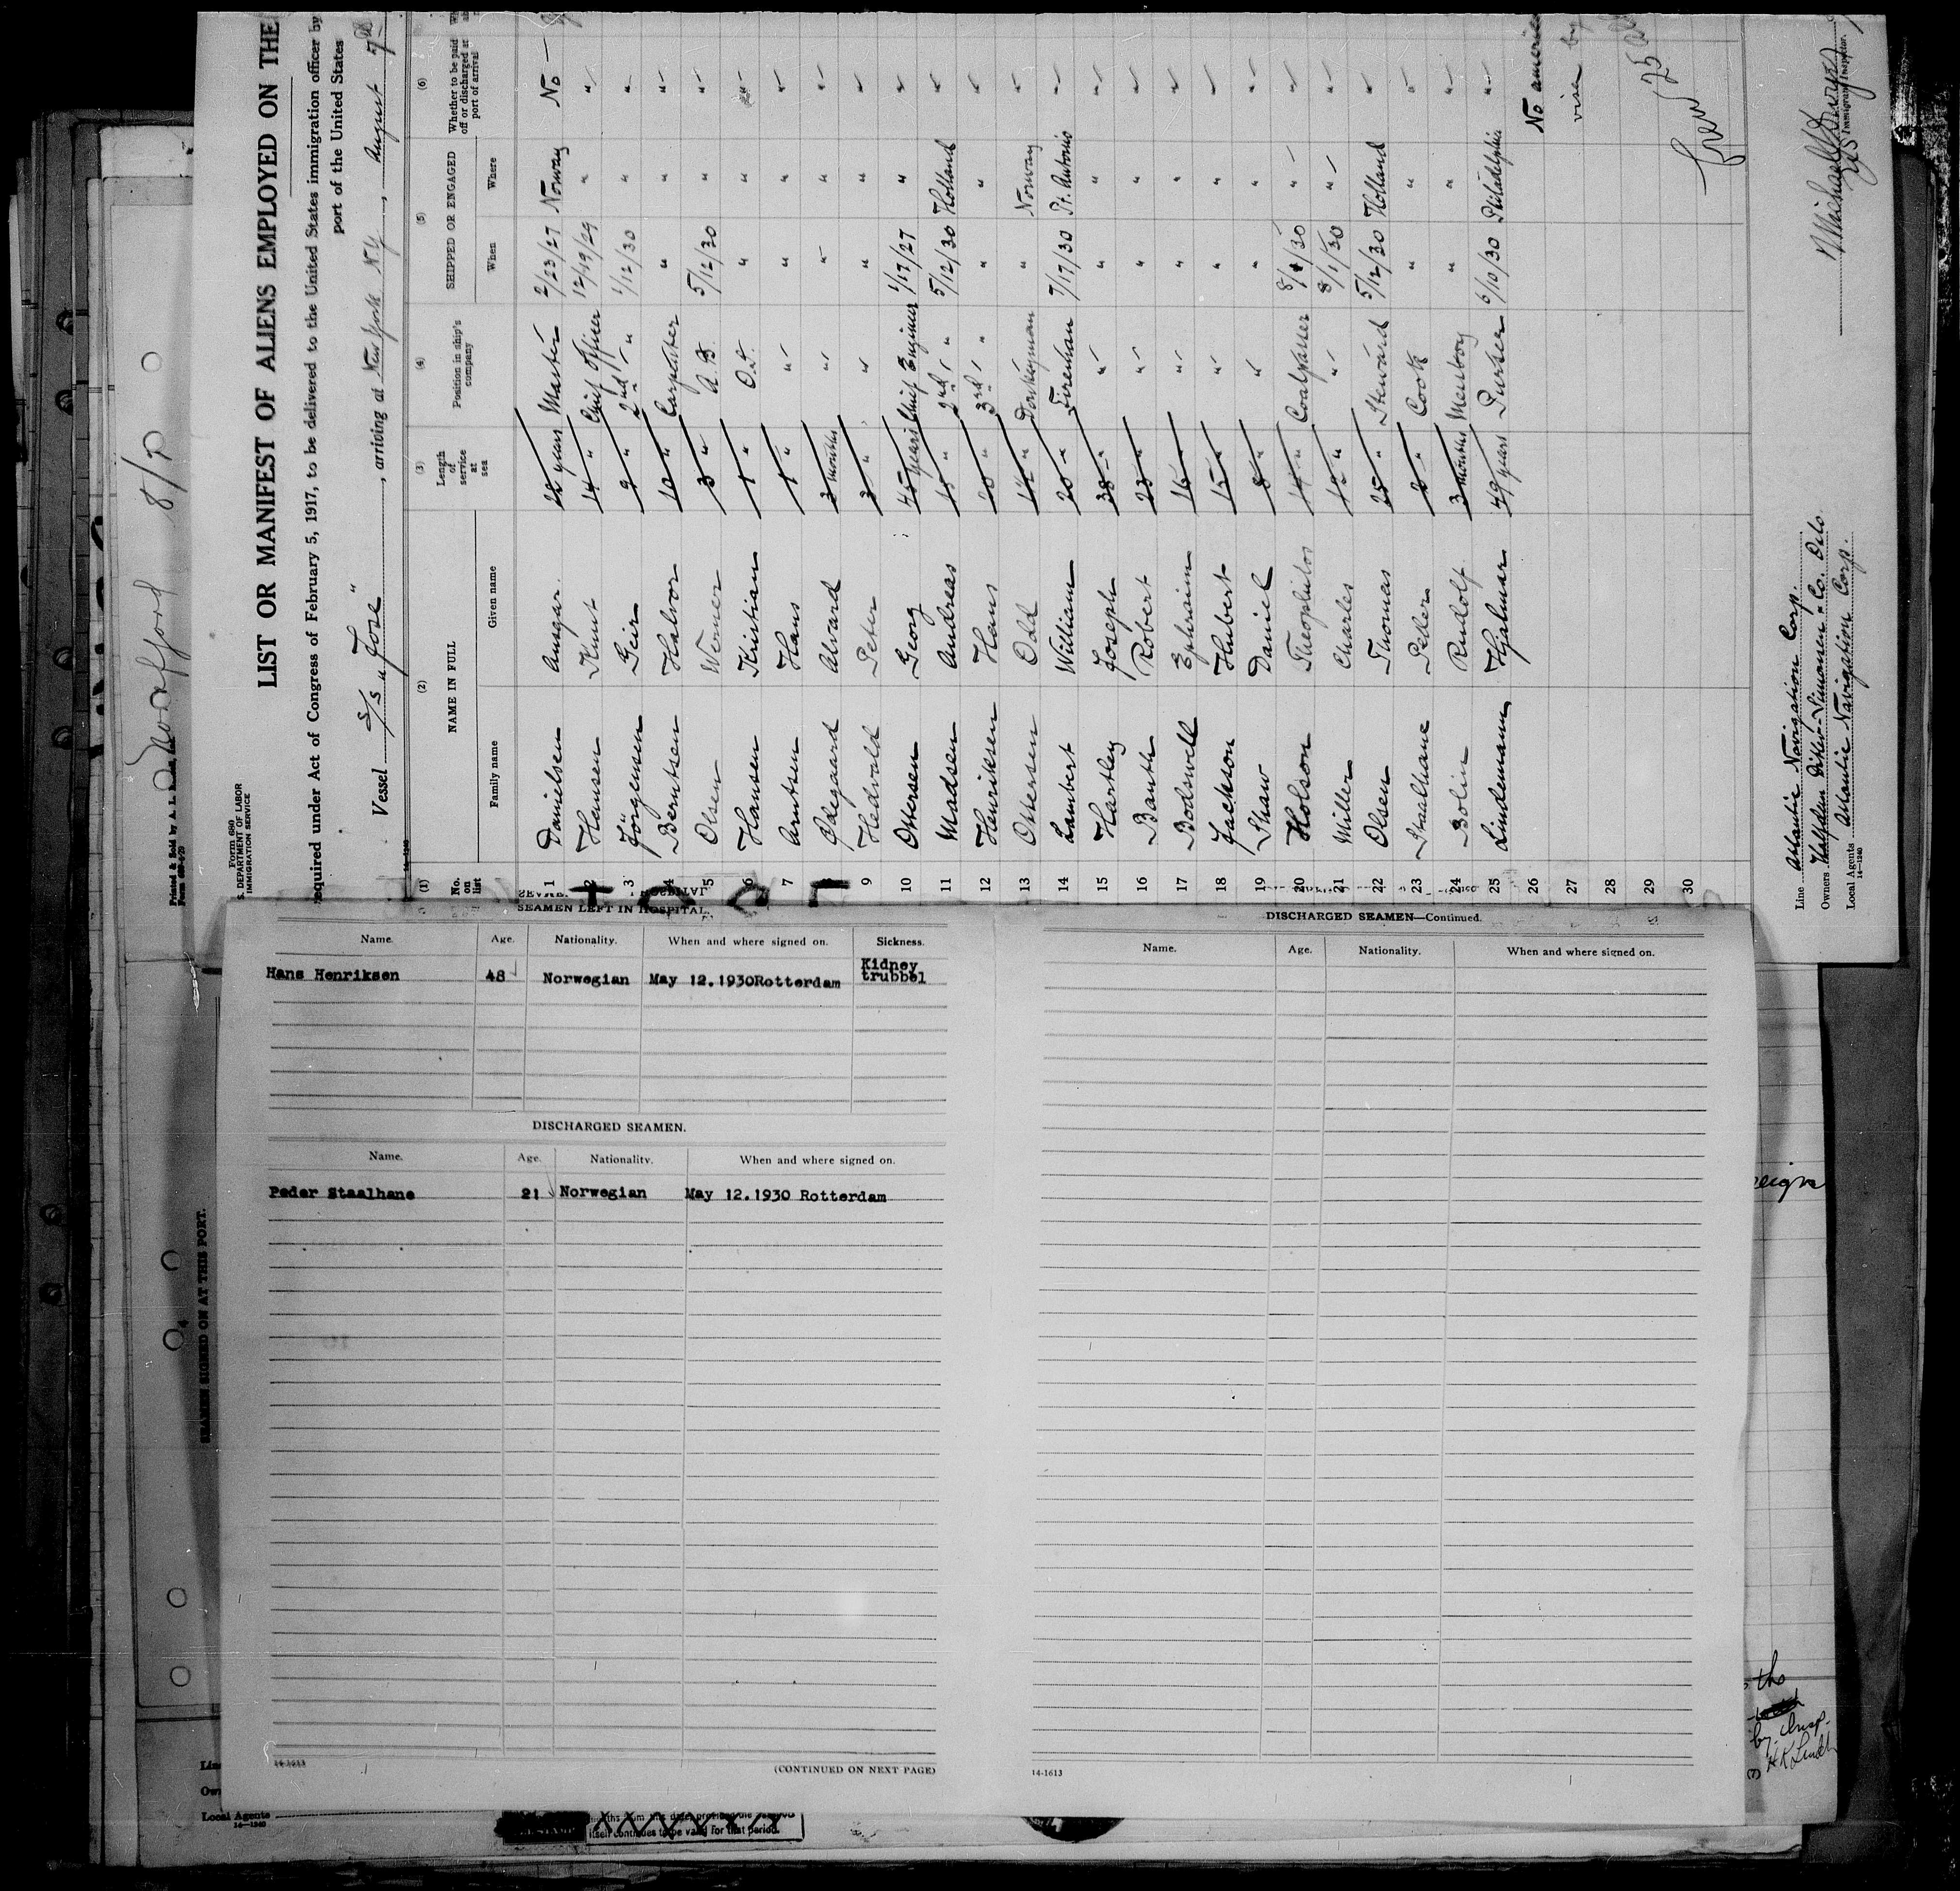 Woodford 8/7
Form 680
U.S. DEPARTMENT OF LABOR
IMMIGRATION SERVICE
LIST OR MANIFEST OF ALIENS EMPLOYED ON THE
required under Act of Congress of February 5, 1917, to be delivered to the United States immigration officer by
port of the United States
Vessel S/S "Tore", arriving at New York N.Y., August 7th
(1) (2) (3) (4) (5) (6)
No. on list NAME IN FULL Length of service at sea Position in ship's company SHIPPED OR ENGAGED Whether to be paid off or discharged at port of arrival
Family name Given name When Where
1 Danielsen Ansgar 22 years Master 2/23/27 Norway No
2 Hansen Knut 14 " Chief Officer 12/19/29 " "
3 Jörgensen Geir 9 " 2nd " 1/12/30 " "
4 Berntsen Halvor 12 " Carpenter " " "
5 Olsen Werner 3 " A.B. 5/12/30 " "
6 Hansen Kristian 1 " O.S. " " "
7 Arntsen Hans 1 " " " " "
8 Ödegaard Alvard 3 months " " " "
9 Hedvald Peter 3 " " " " "
10 Ottersen Georg 45 years Chief Engineer 1/17/27 " "
11 Madsen Andreas 15 " 2nd " 5/12/30 Holland "
12 Henriksen Hans 20 " 3rd " " " "
13 Ottersen Odd 14 " Donkeyman " Norway "
14 Lambert William 20 " Fireman 7/17/30 Pt. Antonio "
15 Hartley Joseph 38 " " " " "
16 Banth Robert 23 " " " " "
17 Bodswell Ephraim 16 " " " " "
18 Jackson Hubert 15 " " " " "
19 Shaw Daniel 8 " " " " "
20 Holson Theophilos 14 " Coalpasser 8/1/30 " "
21 Miller Charles 12 " " 8/1/30 " "
22 Olsen Thomas 25 " Steward 5/12/30 Holland "
23 Staalhane Peder 2 " Cook " " "
24 Bolin Rudolf 3 months Messboy " " "
25 Lindemann Hjalmar 49 years Purser 6/10/30 Philadelphia "
26 No american
27 visa by
28
29
30
Crew 25
Line Atlantic Navigation Corp.
Owners Halfdan Ditlev-Simonsen & Co. Oslo
Local Agents Atlantic Navigation Corp.
14—1240
Immigrant Inspector.
SEAMEN LEFT IN HOSPITAL.
Name. Age. Nationality. When and where signed on. Sickness.
Hans Henriksen 48 Norwegian May 12.1930 Rotterdam Kidney trubbel
DISCHARGED SEAMEN.
Name. Age. Nationality. When and where signed on.
Peder Staalhane 21 Norwegian May 12.1930 Rotterdam
14-1613
(CONTINUED ON NEXT PAGE)
DISCHARGED SEAMEN—Continued.
Name. Age. Nationality. When and where signed on.
14-1613
SEAMEN SIGNED ON AT THIS PORT.
Local Agents
14—1240
itself continues to be valid for that period.
the
by Insp.